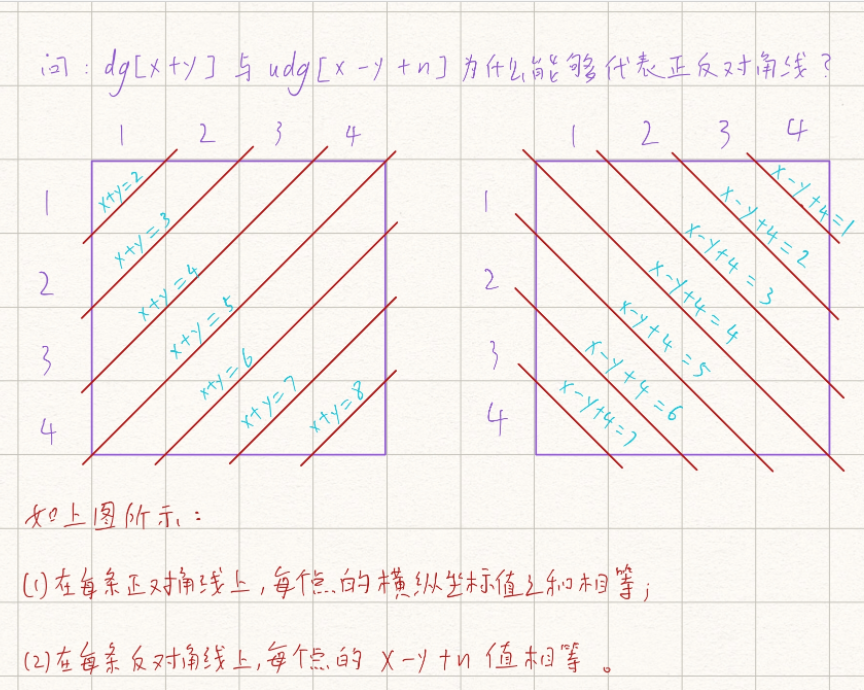 问：dg[x+y] 与 udg[x-y+n] 为什么能够代表正反对角线？
1 2 3 4
1
2
3
4
x+y=2
x+y=3
x+y=4
x+y=5
x+y=6
x+y=7
x+y=8
1 2 3 4
1
2
3
4
x-y+4=1
x-y+4=2
x-y+4=3
x-y+4=4
x-y+4=5
x-y+4=6
x-y+4=7
如上图所示：
(1)在每条正对角线上，每个点的横纵坐标值之和相等；
(2)在每条反对角线上，每个点的 x-y+n 值相等。